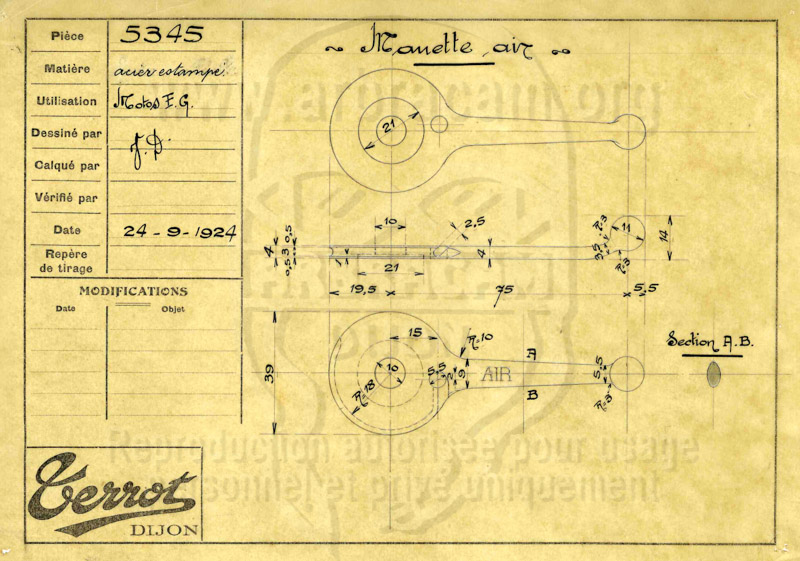 Pièce 5345
Matière acier estampé.
Utilisation Motos F.G.
Dessiné par J.D.
Calqué par
Vérifié par
Date 24-9-1924
Repère
de tirage
MODIFICATIONS
Date Objet
Terrot
DIJON
~ Manette air ~
21
10
2,5
R.3
11
14
4
0,5 3 0,5
1
21
4
3,5
R.3
19,5
75
5,5
39
15
R.10
A
10
5,5
2
9
AIR
5,5
R.18
B
R.3
Section A.B.
Reproduction autorisée pour usage
personnel et privé uniquement